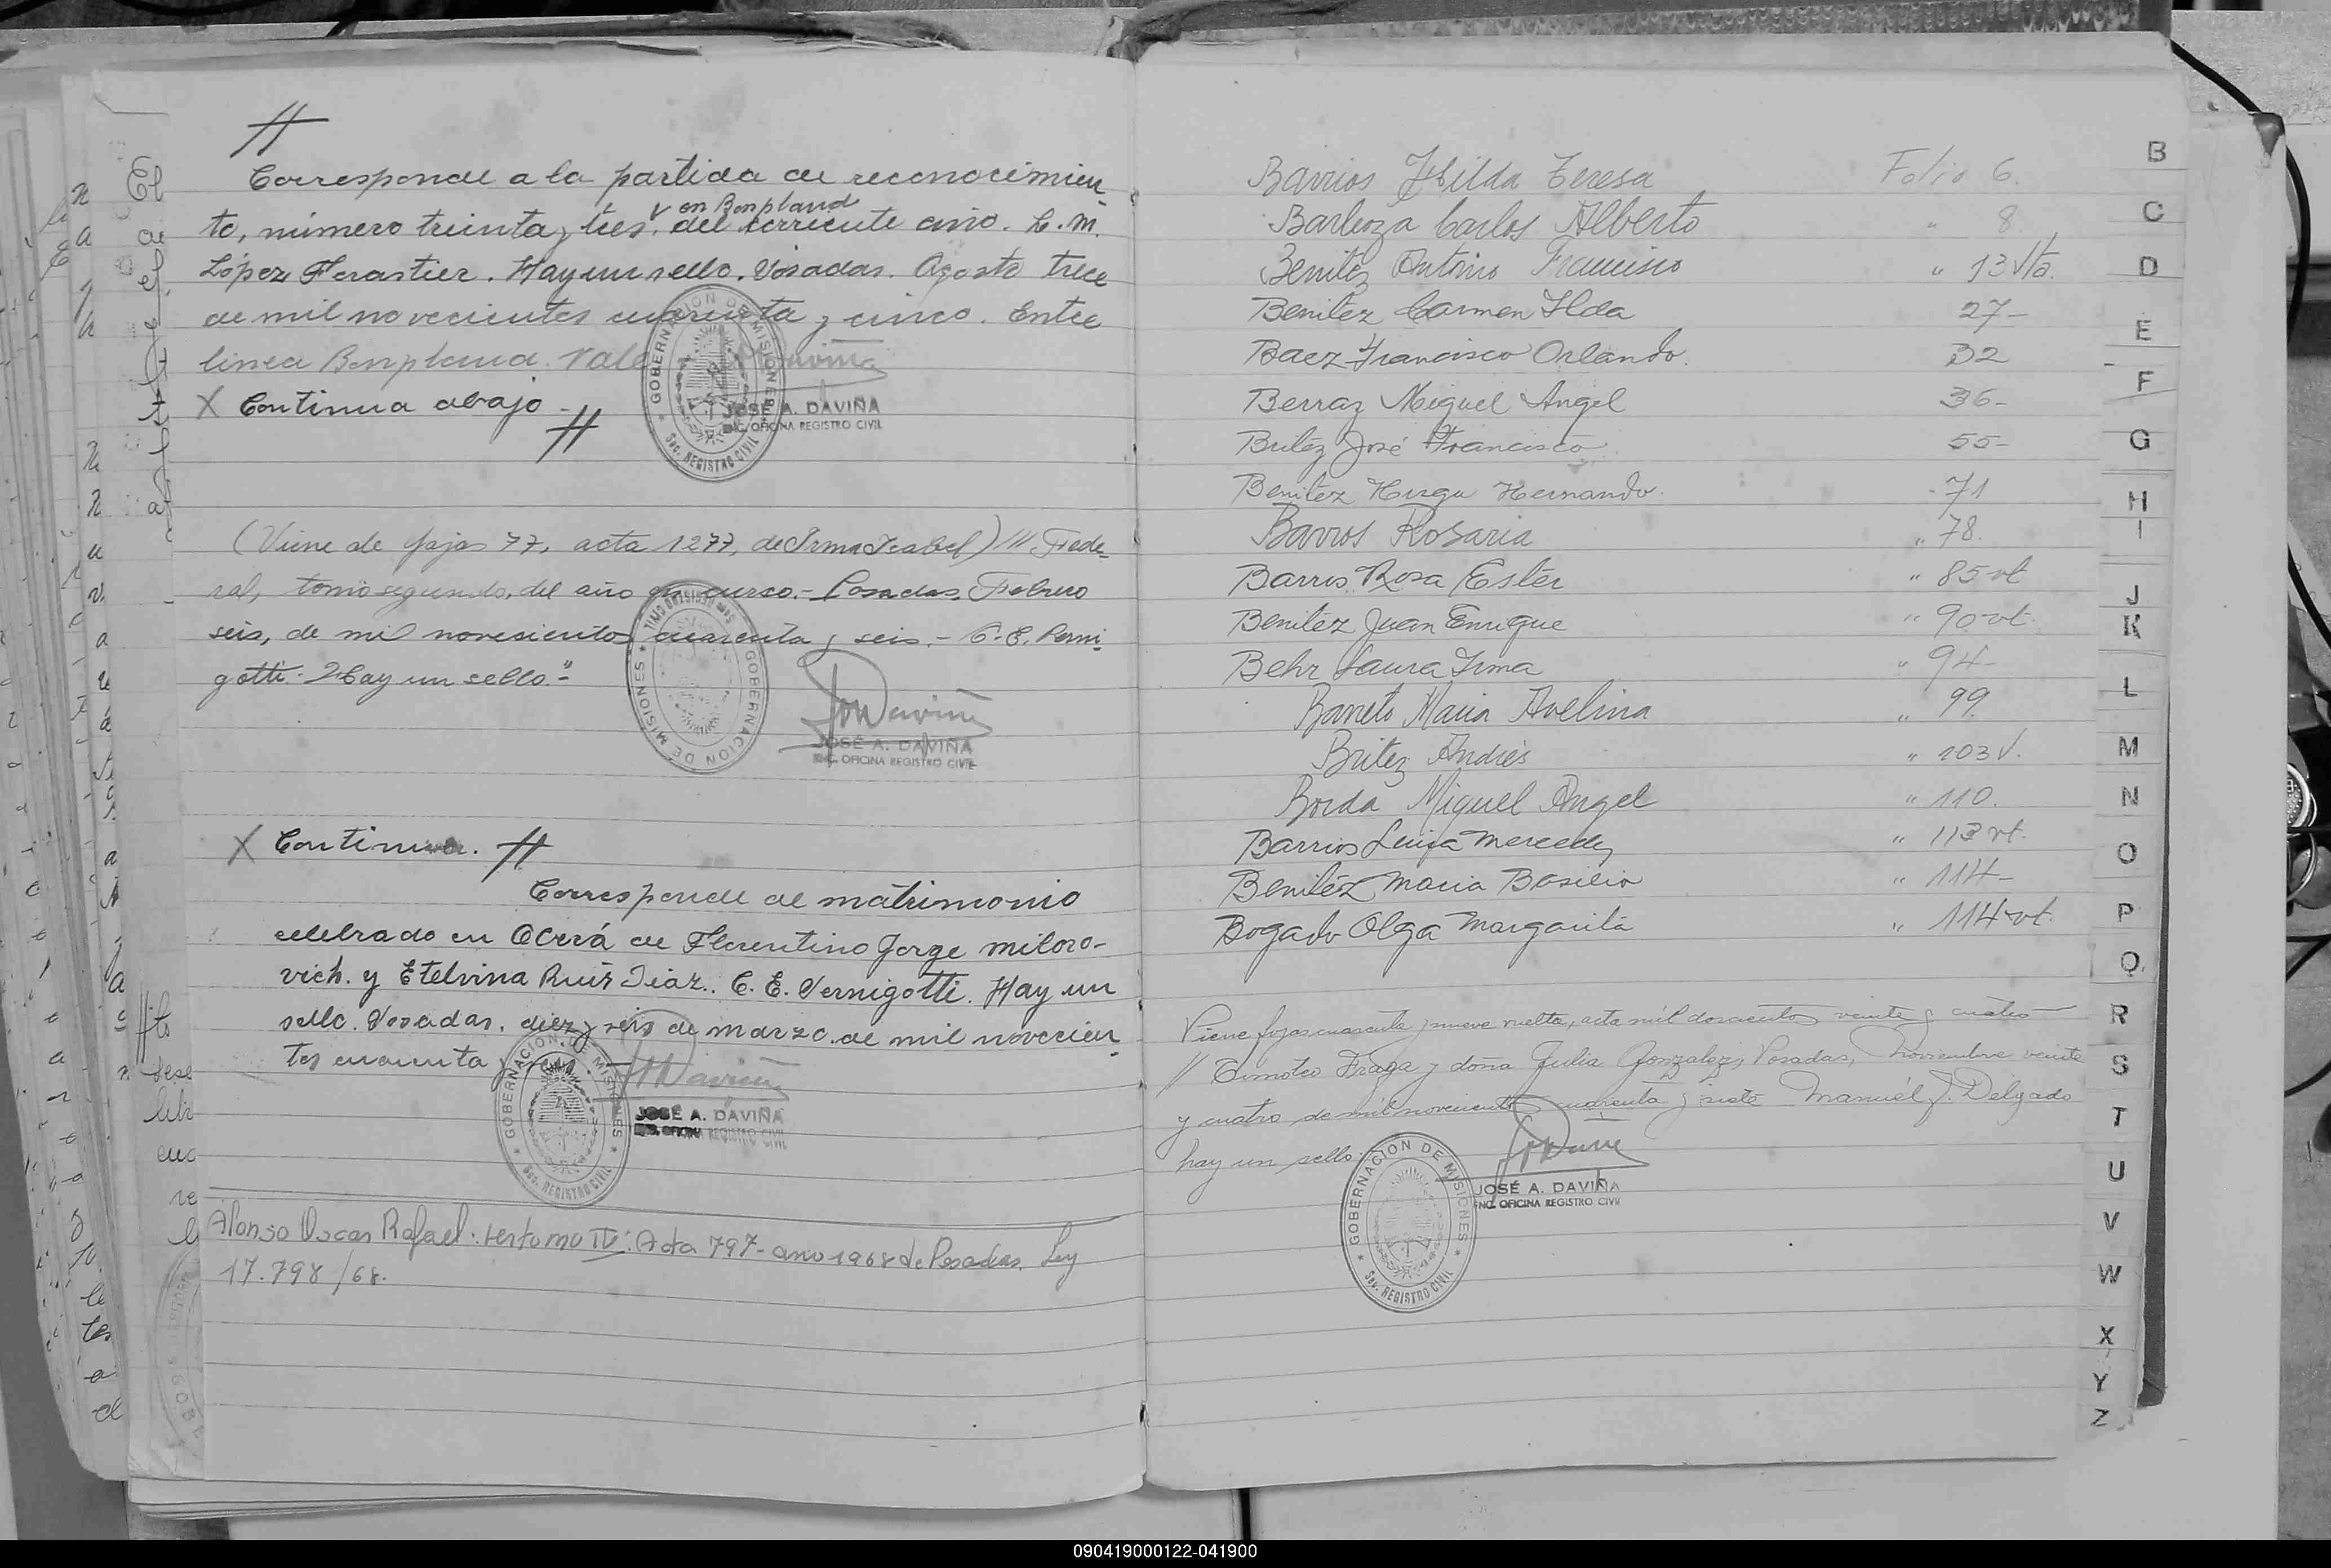 //
Corresponde a la partida de reconocimien-
to, número treinta y tres, del corriente año. C. M.
v en Bonpland
López Forastier. Hay un sello. Posadas. Agosto trece
de mil novecientos cuarenta y cinco. Entre
linea Bonpland. Vale
X Continua abajo - //
GOBERNACION DE MISIONES
Sec. REGISTRO CIVIL
JOSÉ A. DAVIÑA
ENC. OFICINA REGISTRO CIVIL
(Viene de fojas 77, acta 1277, de Irma Isabel) // Fede-
ral, tomo segundo, del año en curso.- Posadas, Febrero
seis, de mil novesientos cuarenta y seis.- C. E. Perni-
gotti.- Hay un sello.-"
GOBERNACION DE MISIONES
REGISTRO CIVIL
JOSÉ A. DAVIÑA
ENC. OFICINA REGISTRO CIVIL
X Continua. //
Corresponde al matrimonio
celebrado en Oberá de Florentino Jorge miloro-
vich. y Etelvina Ruíz Diaz.. C. E. Pernigotti. Hay un
sello. Posadas, diez y seis de marzo de mil novecien-
tos cuarenta y seis
GOBERNACION DE MISIONES
Sec. REGISTRO CIVIL
JOSÉ A. DAVIÑA
ENC. OFICINA REGISTRO CIVIL
Alonso Oscar Rafael. ver tomo IV. Acta 797- año 1968 de Posadas. Ley
17.798/68.
Barrios Hilda Teresa Folio 6.
Barboza Carlos Alberto " 8
Benitez Antonio Francisco " 13 Vta.
Benitez Carmen Ilda 27-
Baez Francisco Orlando. 32
Berraz Miguel Angel 36-
Britez José Francisco 55-
Benitez Hugu Hernando. 71
Barros Rosaria " 78.
Barros Rosa Ester " 85 vt
Benitez Juan Enrique " 90 vt.
Behr Laura Irma " 94-
Barreto Maria Avelina " 99.
Britez Andrés " 103 V.
Borda Miguel Angel " 110.
Barrios Luisa Mercedes " 113 vt.
Benitez Maria Basilia " 114-
Bogado Olga Margarita " 114 vt.
Viene fojas cuarenta y nueve vuelta, acta mil doscientos veinte y cuatro
// Timoteo Fraga y doña Julia Gonzalez, Posadas, Noviembre veinte
y cuatro de mil novecientos cuarenta y siete Manuel J. Delgado
hay un sello.
GOBERNACION DE MISIONES
Sec. REGISTRO CIVIL
JOSÉ A. DAVIÑA
ENC. OFICINA REGISTRO CIVIL
B
C
D
E
F
G
H
I
J
K
L
M
N
O
P
Q
R
S
T
U
V
W
X
Y
Z
090419000122-041900